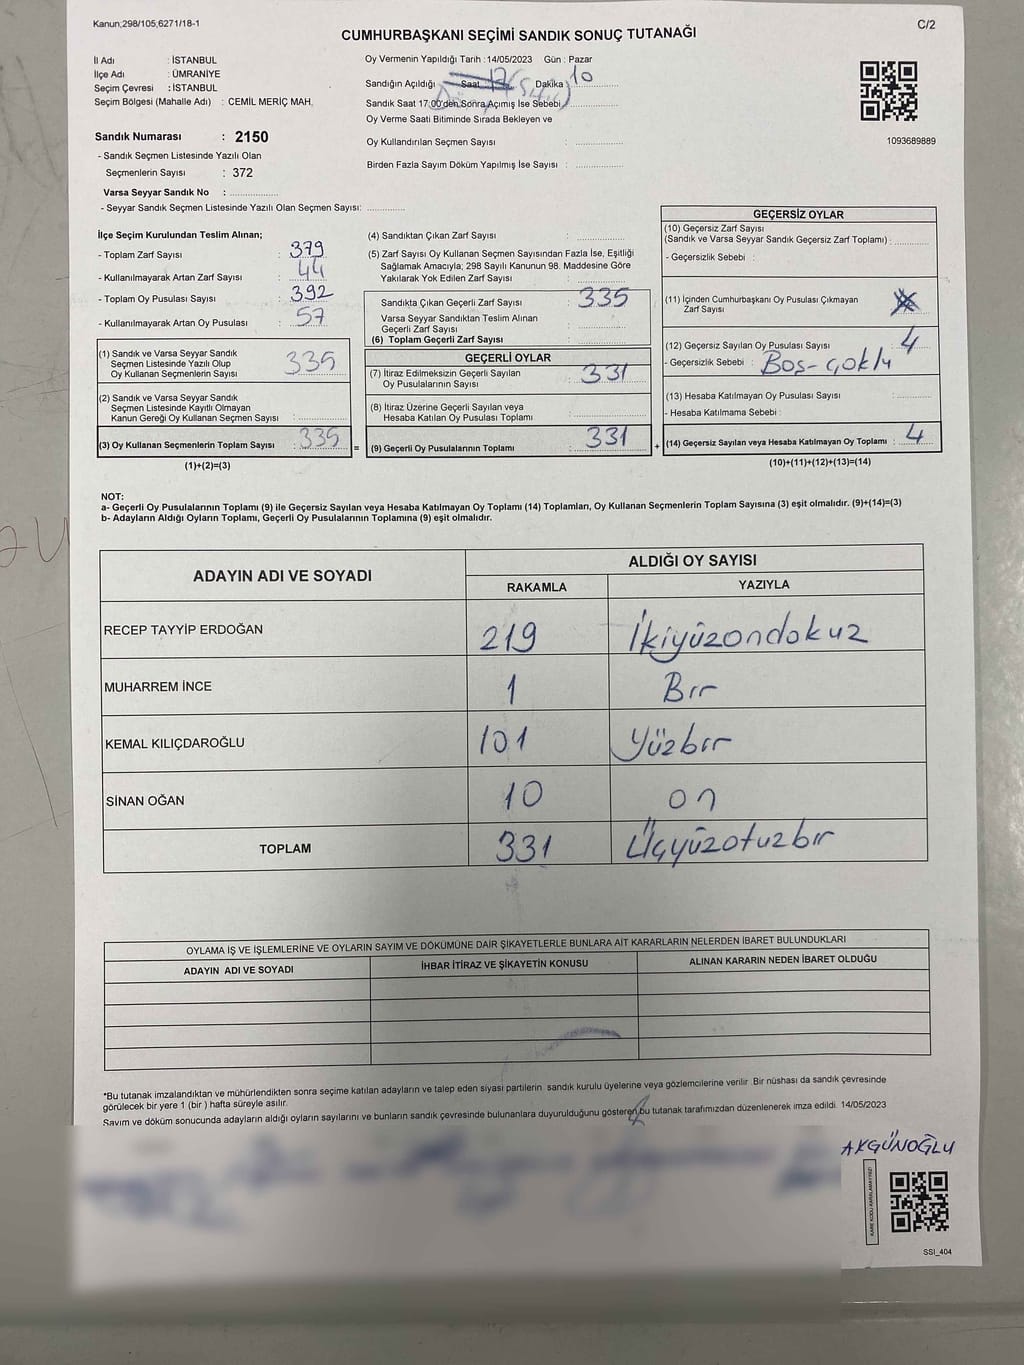 Kanun;298/105,6271/18-1
C/2
CUMHURBAŞKANI SEÇİMİ SANDIK SONUÇ TUTANAĞI
İl Adı : İSTANBUL
İlçe Adı : ÜMRANİYE
Seçim Çevresi : İSTANBUL
Seçim Bölgesi (Mahalle Adı) : CEMİL MERİÇ MAH.
Sandık Numarası : 2150
- Sandık Seçmen Listesinde Yazılı Olan
Seçmenlerin Sayısı : 372
Varsa Seyyar Sandık No :
- Seyyar Sandık Seçmen Listesinde Yazılı Olan Seçmen Sayısı:
Oy Vermenin Yapıldığı Tarih : 14/05/2023 Gün : Pazar
Sandığın Açıldığı Saat 17 Dakika 10
Sandık Saat 17.00'den Sonra Açmış İse Sebebi
Oy Verme Saati Bitiminde Sırada Bekleyen ve
Oy Kullandırılan Seçmen Sayısı :
Birden Fazla Sayım Döküm Yapılmış İse Sayısı :
1093689889
İlçe Seçim Kurulundan Teslim Alınan;
- Toplam Zarf Sayısı : 379
- Kullanılmayarak Artan Zarf Sayısı : 44
- Toplam Oy Pusulası Sayısı : 392
- Kullanılmayarak Artan Oy Pusulası : 57
(1) Sandık ve Varsa Seyyar Sandık
Seçmen Listesinde Yazılı Olup
Oy Kullanan Seçmenlerin Sayısı : 335
(2) Sandık ve Varsa Seyyar Sandık
Seçmen Listesinde Kayıtlı Olmayan
Kanun Gereği Oy Kullanan Seçmen Sayısı :
(3) Oy Kullanan Seçmenlerin Toplam Sayısı : 335 =
(1)+(2)=(3)
(4) Sandıktan Çıkan Zarf Sayısı :
(5) Zarf Sayısı Oy Kullanan Seçmen Sayısından Fazla İse, Eşitliği
Sağlamak Amacıyla; 298 Sayılı Kanunun 98. Maddesine Göre
Yakılarak Yok Edilen Zarf Sayısı :
Sandıkta Çıkan Geçerli Zarf Sayısı : 335
Varsa Seyyar Sandıktan Teslim Alınan
Geçerli Zarf Sayısı :
(6) Toplam Geçerli Zarf Sayısı :
GEÇERLİ OYLAR
(7) İtiraz Edilmeksizin Geçerli Sayılan
Oy Pusulalarının Sayısı : 331
(8) İtiraz Üzerine Geçerli Sayılan veya
Hesaba Katılan Oy Pusulası Toplamı :
(9) Geçerli Oy Pusulalarının Toplamı : 331 +
GEÇERSİZ OYLAR
(10) Geçersiz Zarf Sayısı
(Sandık ve Varsa Seyyar Sandık Geçersiz Zarf Toplamı) :
- Geçersizlik Sebebi :
(11) İçinden Cumhurbaşkanı Oy Pusulası Çıkmayan
Zarf Sayısı
(12) Geçersiz Sayılan Oy Pusulası Sayısı : 4
- Geçersizlik Sebebi : Boş-çoklu
(13) Hesaba Katılmayan Oy Pusulası Sayısı :
- Hesaba Katılmama Sebebi :
(14) Geçersiz Sayılan veya Hesaba Katılmayan Oy Toplamı : 4
(10)+(11)+(12)+(13)=(14)
NOT:
a- Geçerli Oy Pusulalarının Toplamı (9) ile Geçersiz Sayılan veya Hesaba Katılmayan Oy Toplamı (14) Toplamları, Oy Kullanan Seçmenlerin Toplam Sayısına (3) eşit olmalıdır. (9)+(14)=(3)
b- Adayların Aldığı Oyların Toplamı, Geçerli Oy Pusulalarının Toplamına (9) eşit olmalıdır.
ADAYIN ADI VE SOYADI
ALDIĞI OY SAYISI
RAKAMLA YAZIYLA
RECEP TAYYİP ERDOĞAN 219 İkiyüzondokuz
MUHARREM İNCE 1 Bır
KEMAL KILIÇDAROĞLU 101 Yüzbır
SİNAN OĞAN 10 on
TOPLAM 331 Üçyüzotuzbır
OYLAMA İŞ VE İŞLEMLERİNE VE OYLARIN SAYIM VE DÖKÜMÜNE DAİR ŞİKAYETLERLE BUNLARA AİT KARARLARIN NELERDEN İBARET BULUNDUKLARI
ADAYIN ADI VE SOYADI İHBAR İTİRAZ VE ŞİKAYETİN KONUSU ALINAN KARARIN NEDEN İBARET OLDUĞU
*Bu tutanak imzalandıktan ve mühürlendikten sonra seçime katılan adayların ve talep eden siyasi partilerin sandık kurulu üyelerine veya gözlemcilerine verilir .Bir nüshası da sandık çevresinde
görülecek bir yere 1 (bir ) hafta süreyle asılır.
Sayım ve döküm sonucunda adayların aldığı oyların sayılarını ve bunların sandık çevresinde bulunanlara duyurulduğunu gösteren bu tutanak tarafımızdan düzenlenerek imza edildi. 14/05/2023
AKGÜNOĞLU
KARE KODU KARALAMAYINIZ!
SSI_404